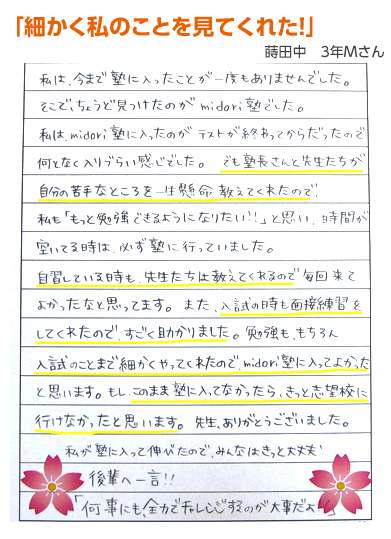 「細かく私のことを見てくれた!」
蒔田中　3年Mさん
私は、今まで塾に入ったことが一度もありませんでした。
そこで、ちょうど見つけたのがmidori塾でした。
私は、midori塾に入ったのがテストが終わってからだったので
何となく入りづらい感じでした。でも塾長さんと先生たちが
自分の苦手なところを一生懸命、教えてくれたので、
私も「もっと勉強できるようになりたい!!」と思い、時間が
空いてる時は、必ず塾に行っていました。
自習している時も、先生たちは教えてくれるので毎回来て
よかったなと思ってます。また、入試の時も面接練習を
してくれたので、すごく助かりました。勉強も、もちろん
入試のことまで細かくやってくれたので、midori塾に入ってよかった
と思います。もし、このまま塾に入ってなかったら、きっと志望校に
行けなかったと思います。先生、ありがとうございました。
私が塾に入って伸びたので、みんなはきっと大丈夫!
後輩へ一言!!
「何事にも、全力でチャレンジするのが大事だよ!」